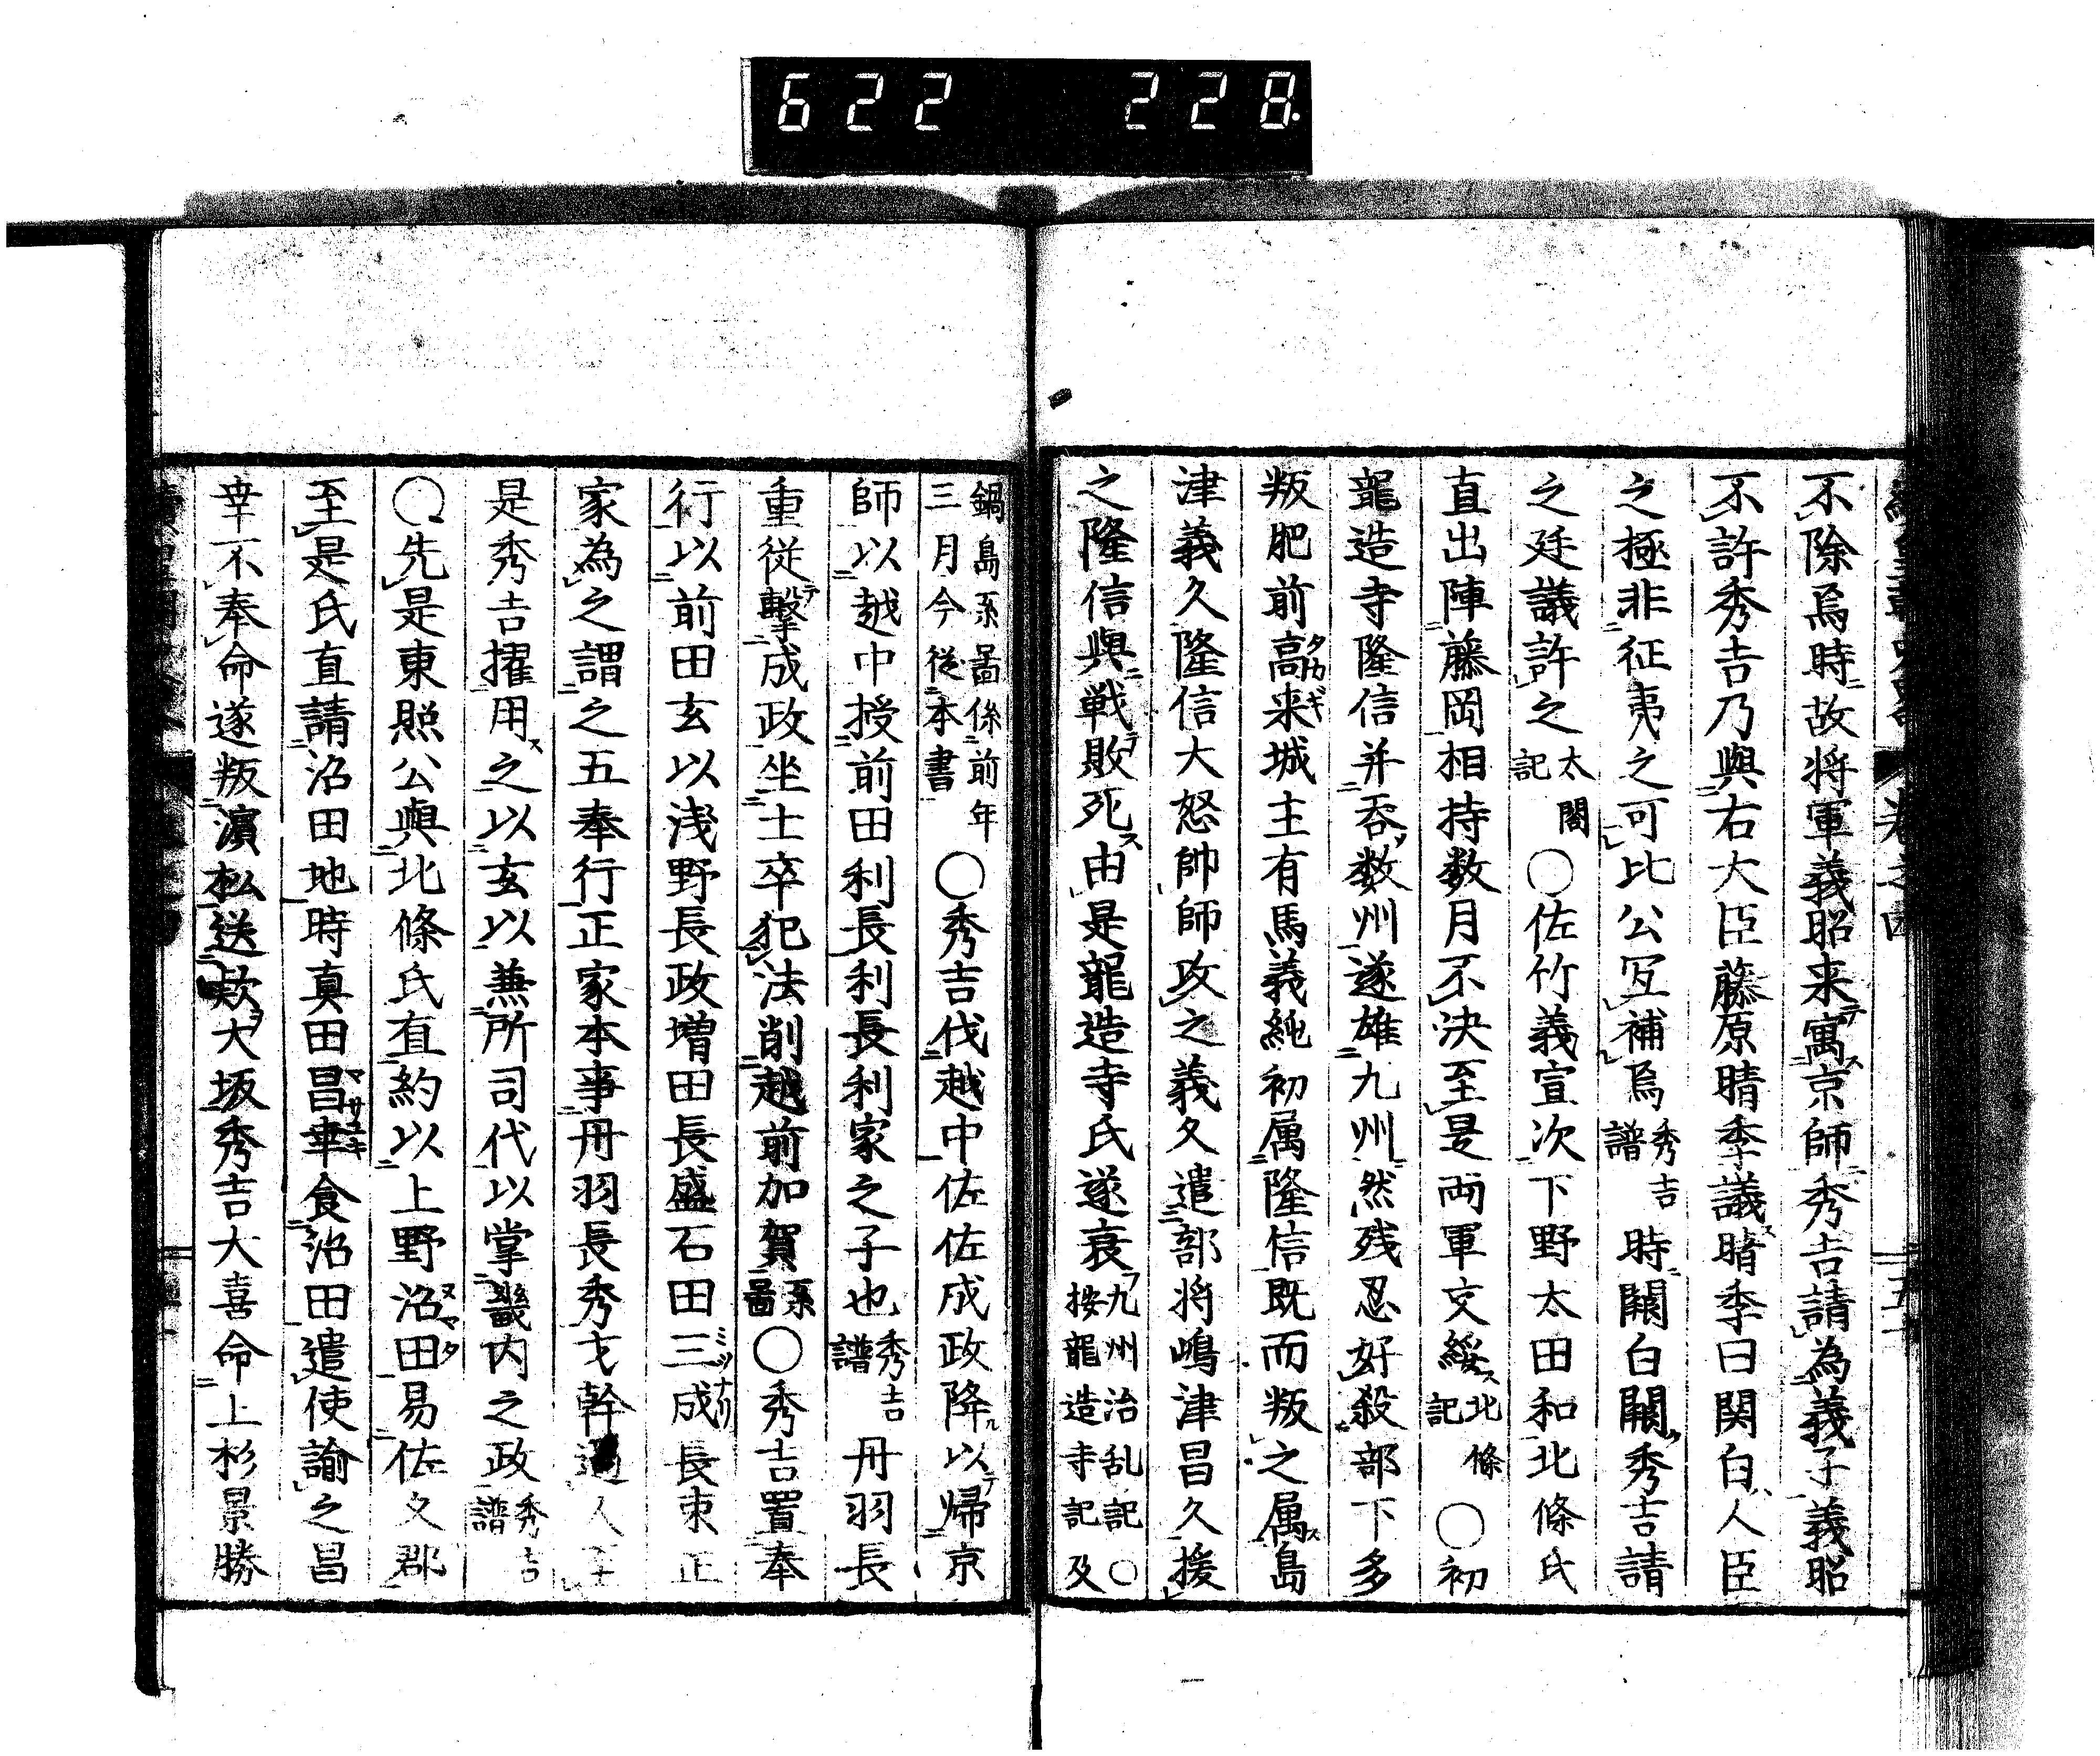 622 228
不除焉時故将軍義昭来寓京師秀吉請為義子義昭
不許秀吉乃與右大臣藤原晴季議晴季曰関白人臣
之極非征夷之可比公宜補焉秀吉譜時闕白關秀吉請
之廷議許之太閤記〇佐竹義宣次下野太田和北條氏
直出陣藤岡相持数月不決至是両軍交綏北條記〇初
龍造寺隆信并呑数州遂雄九州然残忍好殺部下多
叛肥前高来城主有馬義純初属隆信既而叛之属島
津義久隆信大怒帥師攻之義久遣部将嶋津昌久援
之隆信與戦敗死由是龍造寺氏遂衰九州治乱記〇按龍造寺記及
鍋島系啚係前年三月今従本書〇秀吉伐越中佐佐成政降以帰京
師以越中授前田利長利長利家之子也秀吉譜丹羽長
重従撃成政坐士卒犯法削越前加賀系啚〇秀吉置奉
行以前田玄以浅野長政増田長盛石田三成長束正
家為之謂之五奉行正家本事丹羽長秀才幹過人至
是秀吉擢用之以玄以兼所司代以掌畿内之政秀吉譜
〇先是東照公與北條氏直約以上野沼田易佐久郡
至是氏直請沼田地時真田昌幸食沼田遣使諭之昌
幸不奉命遂叛濵松送欵大坂秀吉大喜命上杉景勝